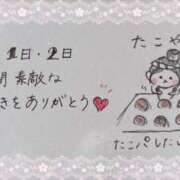 1日・2日
素敵な
きをありがとう♥
たこや
たこパしたい